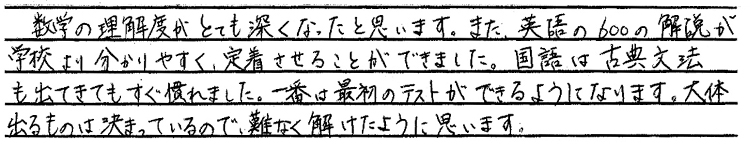 数学の理解度がとても深くなったと思います。また、英語の600の解説が
学校より分かりやすく、定着させることができました。国語は古典文法
も出てきてもすぐ慣れました。一番は最初のテストができるようになります。大体
出るものは決まっているので、難なく解けたように思います。